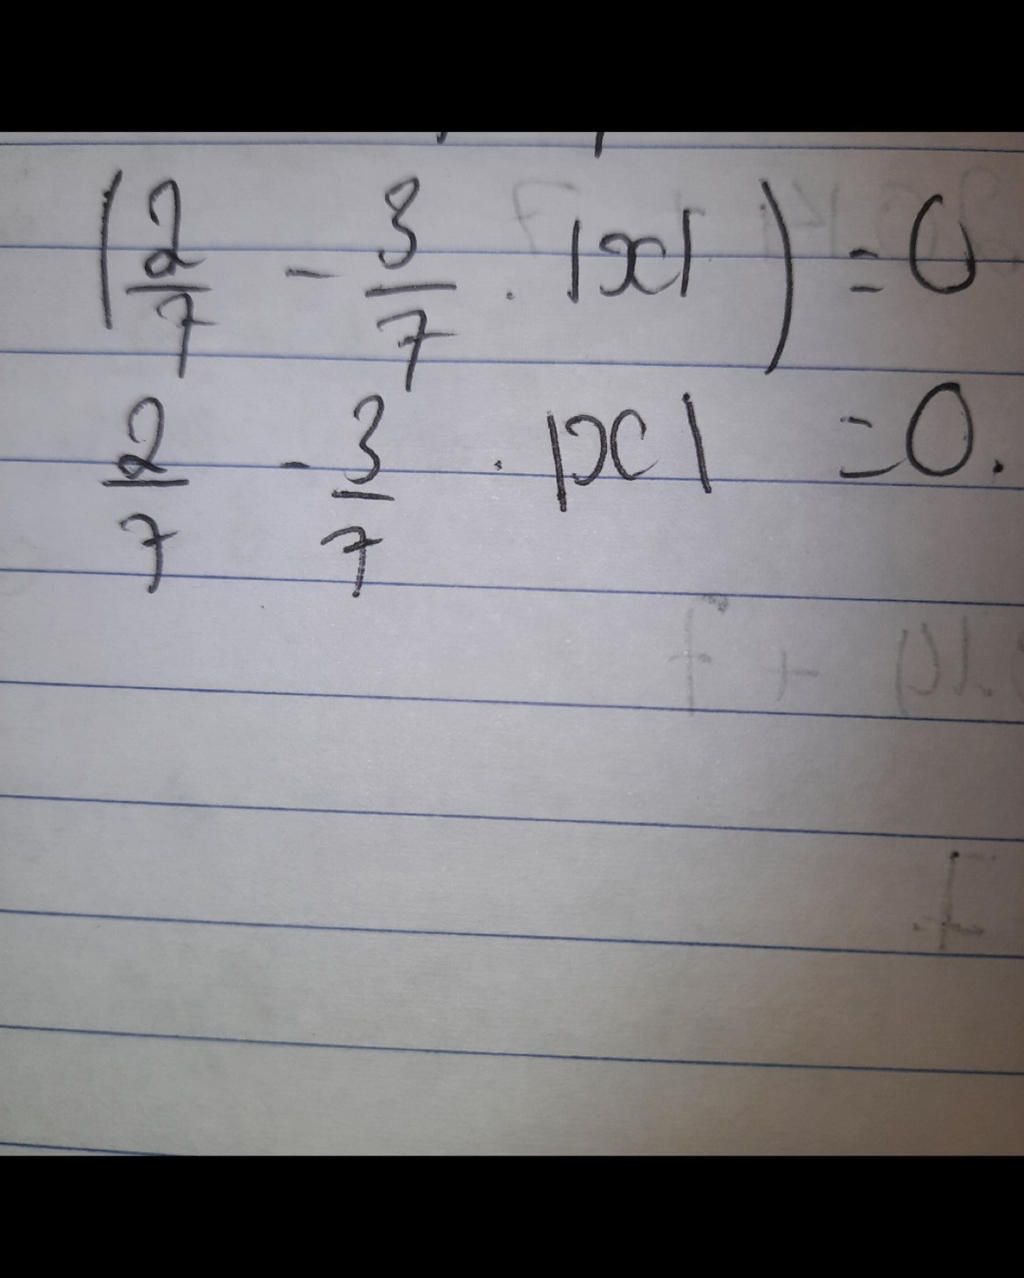 (2/7 - 3/7 . |x|) = 0
2/7 - 3/7 . |x| = 0.